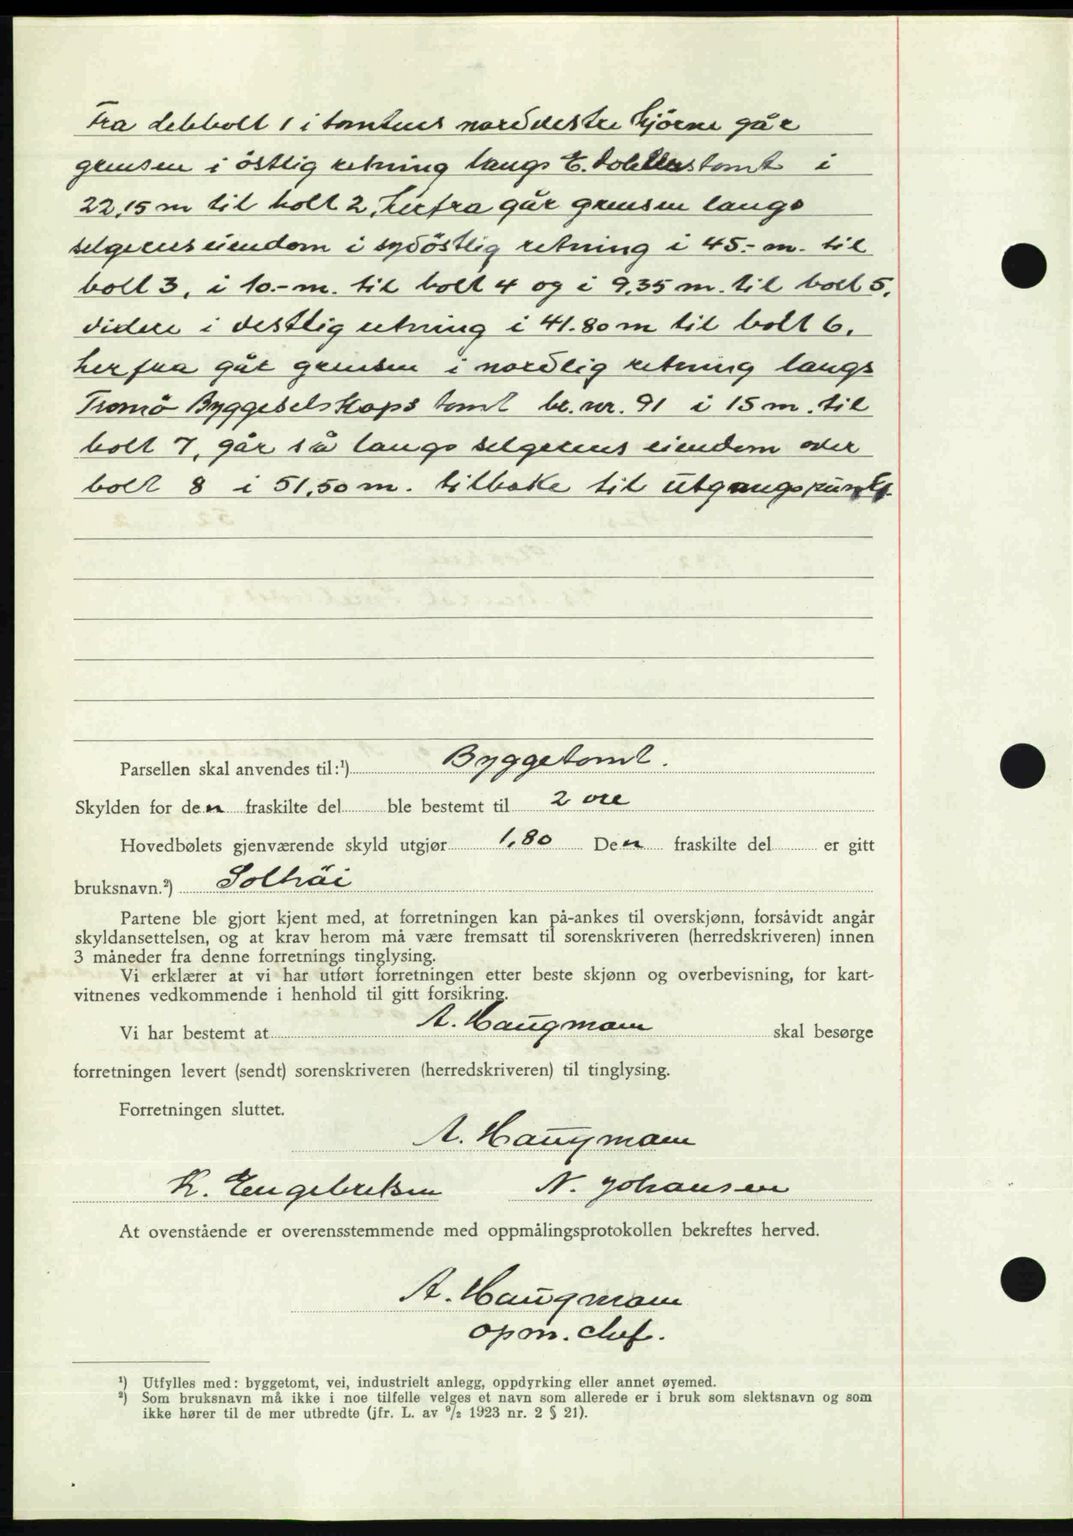 Fra delebolt 1 i tomtens nordvestre hjörne går
grensen i östlig retning langs E. tomt i
22,15 m til bolt 2, herfra går grensen langs
selgerens eiendom i sydöstlig retning i 45.- m. til
bolt 3, i 10.- m. til bolt 4 og i 9,35 m. til bolt 5,
videre i vestlig retning i 41.80 m til bolt 6,
herfra går grensen i nordlig retning langs
Tromö Byggeselskaps tomt br. nr. 91 i 15 m. til
bolt 7, går så langs selgerens eiendom over
bolt 8 i 51,50 m. tilbake til utgangspunkt.
Parsellen skal anvendes til:¹) Byggetomt.
Skylden for den fraskilte del ble bestemt til 2 öre
Hovedbølets gjenværende skyld utgjør 1,80 Den fraskilte del er gitt
bruksnavn.²) Solhöi
Partene ble gjort kjent med, at forretningen kan på-ankes til overskjønn, forsåvidt angår
skyldansettelsen, og at krav herom må være fremsatt til sorenskriveren (herredskriveren) innen
3 måneder fra denne forretnings tinglysing.
Vi erklærer at vi har utført forretningen etter beste skjønn og overbevisning, for kart-
vitnenes vedkommende i henhold til gitt forsikring.
Vi har bestemt at A. Haugmoen skal besørge
forretningen levert (sendt) sorenskriveren (herredskriveren) til tinglysing.
Forretningen sluttet.
A. Haugmoen
K. Engebretsen N. Johansen
At ovenstående er overensstemmende med oppmålingsprotokollen bekreftes herved.
A. Haugmoen
opm. chef.
¹) Utfylles med: byggetomt, vei, industrielt anlegg, oppdyrking eller annet øyemed.
²) Som bruksnavn må ikke i noe tilfelle velges et navn som allerede er i bruk som slektsnavn og som
ikke hører til de mer utbredte (jfr. L. av ⁹/₂ 1923 nr. 2 § 21).